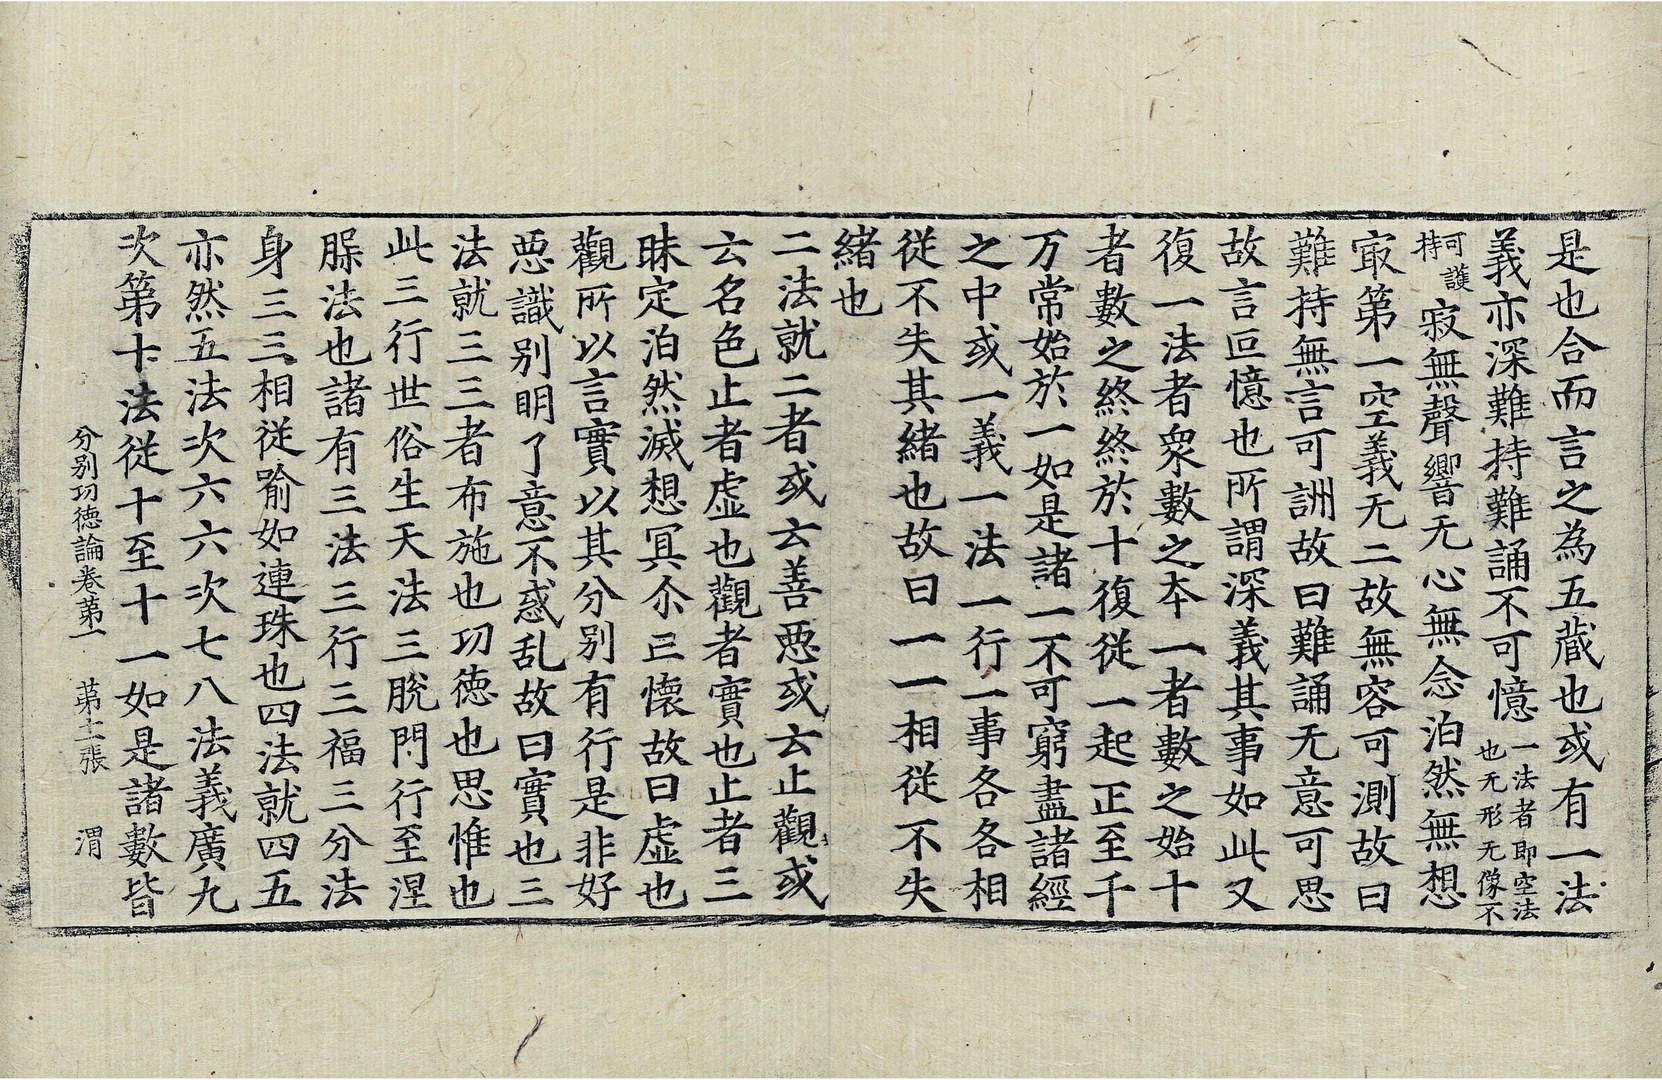 是也合而言之為五蔵也或有一法
義亦深難持難誦不可憶一法者即空法也无形无像不
可護持寂無聲響无心無念泊然無想
冣第一空義无二故無容可測故曰
難持無言可詶故曰難誦无意可思
故言叵憶也所謂深義其事如此又
復一法者眾數之夲一者數之始十
者數之終終於十復從一起正至千
万常始於一如是諸一不可窮盡諸經
之中或一義一法一行一事各各相
從不失其緒也故曰一一相從不失
緒也
二法就二者或云善惡或云止觀或
云名色止者虛也觀者實也止者三
昧定泊然滅想冥尒亡懷故曰虛也
觀所以言實以其分别有行是非好
惡識别明了意不惑乱故曰實也三
法就三三者布施也㓛德也思惟也
此三行世俗生天法三脫門行至涅
脲法也諸有三法三行三福三分法
身三三相従喻如連珠也四法就四五
亦然五法次六六次七八法義廣九
次第十法從十至十一如是諸數皆
分别㓛德論卷苐一 苐十一張 渭